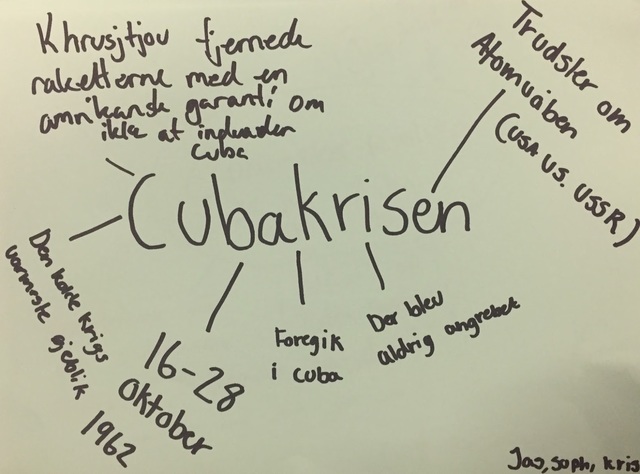 Khrusjtjov fjernede
raketterne med en
amrikansk garanti om
ikke at indvadere
Cuba
Trudsler om
Atomvåben
(USA vs. USSR)
Cubakrisen
Den kolde krigs
varmeste øjeblik
16-28
Oktober
1962
Foregik
i cuba
Der blev
aldrig angrebet
Jao, soph, kris